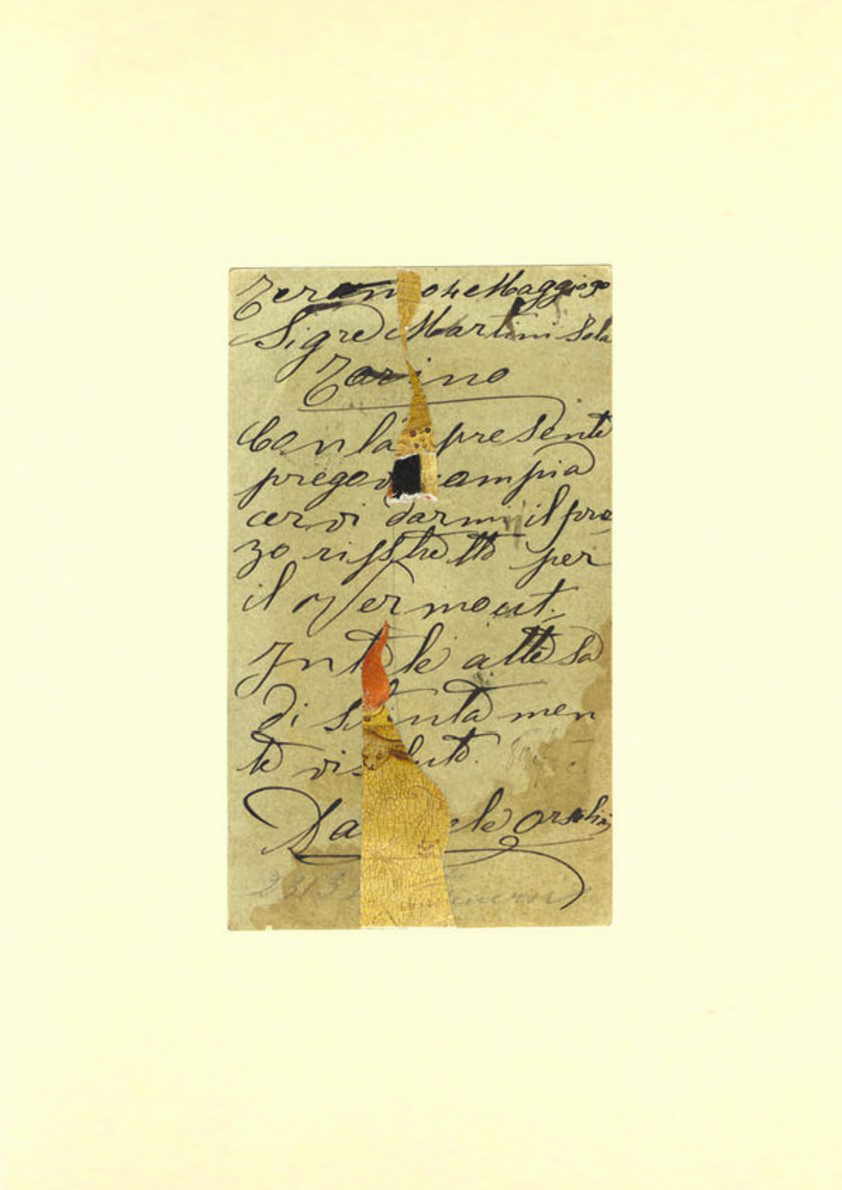 Teramo 4 Maggio 90
Sigre Martini Sola
Torino
Con la presente
pregovi compia
cervi darmi il pre
zo ristretto per
il Vermout.
Int le attesa
Distinta men
te vis luto.
Da ele Orsolini